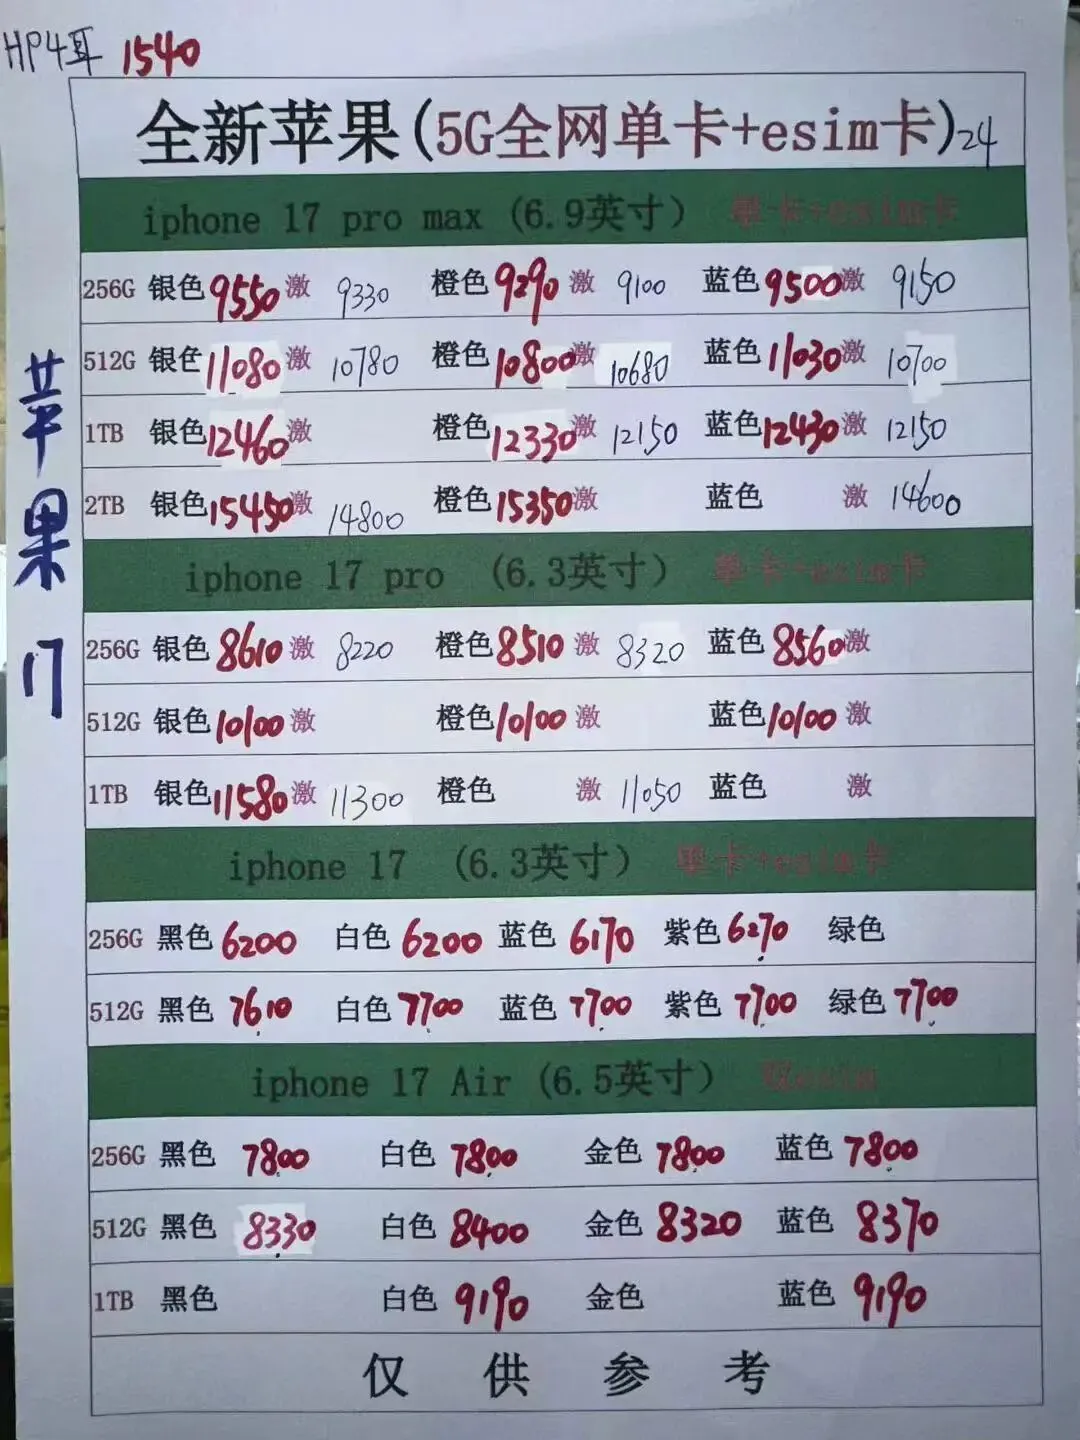 HP4耳 1540
全新苹果(5G全网单卡+esim卡)24
苹果17
iphone 17 pro max (6.9英寸) 单卡+esim卡
256G 银色9550激 9330 橙色9290激 9100 蓝色9500激 9150
512G 银色11080激 10780 橙色10800激 10680 蓝色11030激 10700
1TB 银色12460激 橙色12330激 12150 蓝色12430激 12150
2TB 银色15450激 14800 橙色15350激 蓝色 激 14600
iphone 17 pro (6.3英寸) 单卡+esim卡
256G 银色8610激 8220 橙色8510激 8320 蓝色8560激
512G 银色10100激 橙色10100激 蓝色10100激
1TB 银色11580激 11300 橙色 激 11050 蓝色 激
iphone 17 (6.3英寸) 单卡+esim卡
256G 黑色6200 白色6200 蓝色6170 紫色6270 绿色
512G 黑色7610 白色7700 蓝色7700 紫色7700 绿色7700
iphone 17 Air (6.5英寸) 双esim
256G 黑色 7800 白色 7800 金色 7800 蓝色 7800
512G 黑色 8330 白色 8400 金色 8320 蓝色 8370
1TB 黑色 白色 9190 金色 蓝色 9190
仅供参考